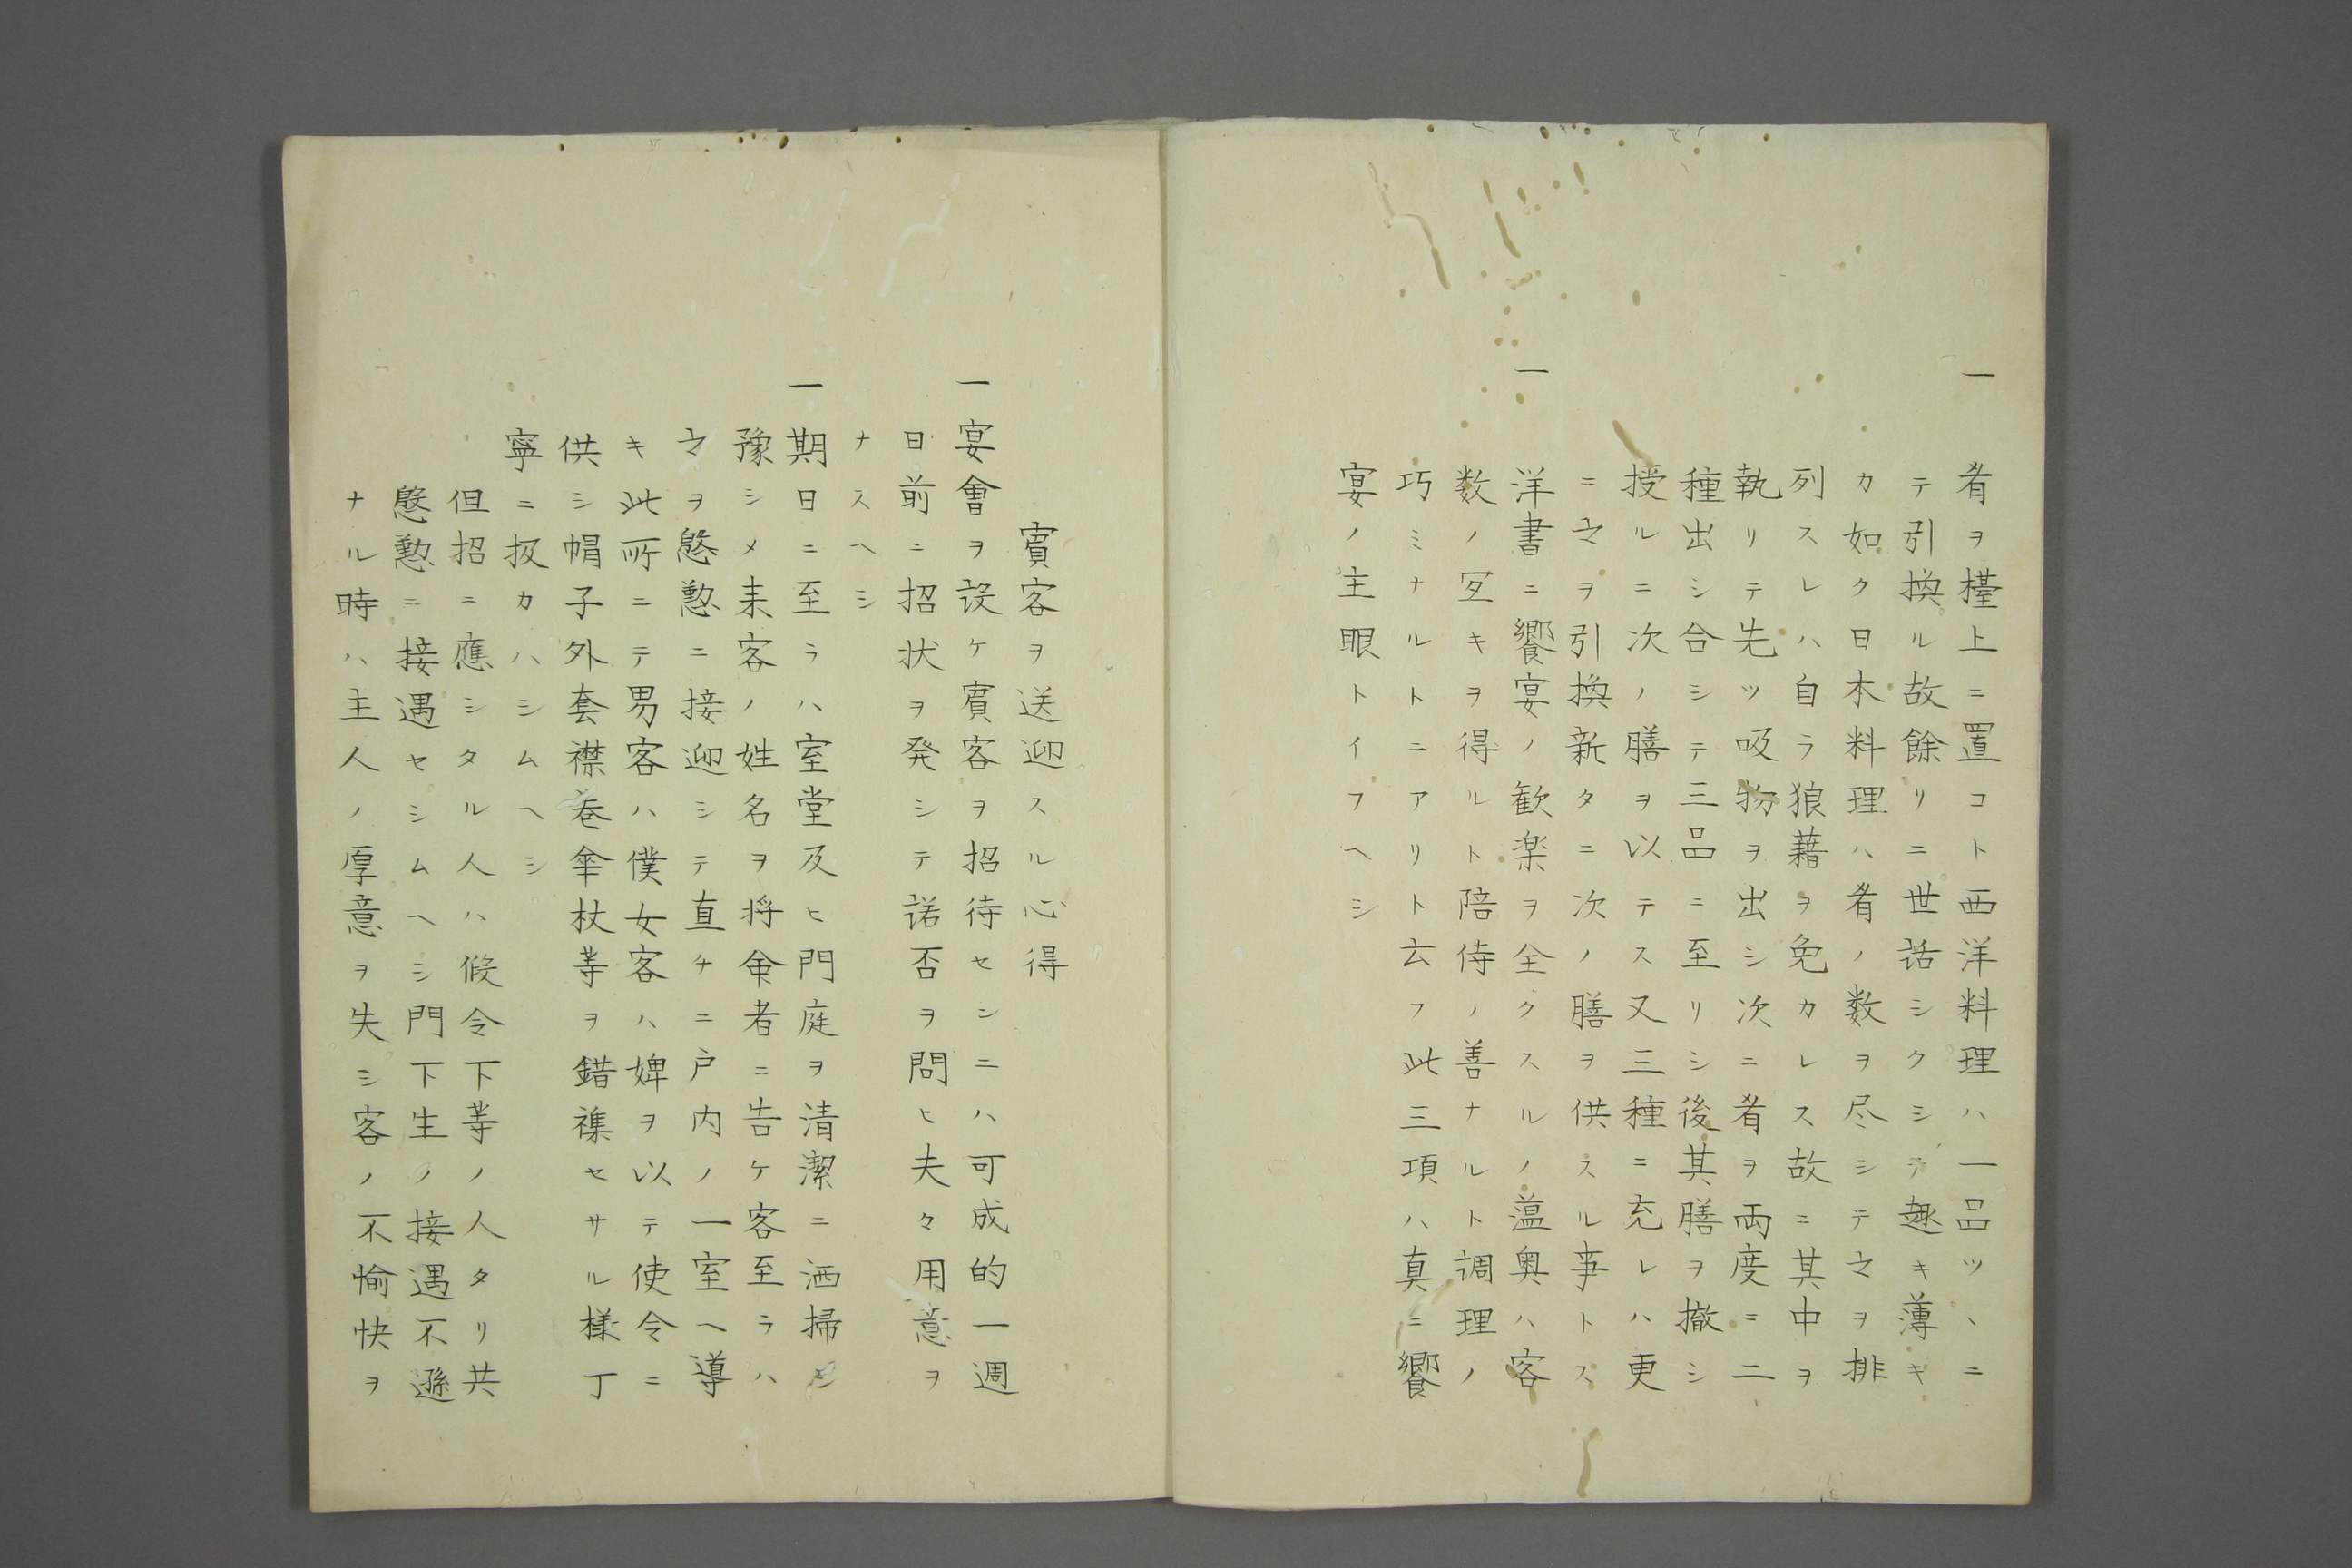 一 肴ヲ檯上ニ置コト西洋料理ハ一品ツヽニ
テ引換ル故餘リニ世話シクシテ趣キ薄キ
カ如ク日本料理ハ肴ノ数ヲ尽シテ之ヲ排
列スレハ自ラ狼藉ヲ免カレス故ニ其中ヲ
執リテ先ツ吸物ヲ出シ次ニ肴ヲ両度ニ二
種出シ合シテ三品ニ至リシ後其膳ヲ撤シ
授ルニ次ノ膳ヲ以テス又三種ニ充レハ更
ニ之ヲ引換新タニ次ノ膳ヲ供スル事トス
一 洋書ニ饗宴ノ歓楽ヲ全クスルノ薀奥ハ客
数ノ冝キヲ得ルト陪侍ノ善ナルト調理ノ
巧ミナルトニアリト云フ此三項ハ真ニ饗
宴ノ主眼トイフヘシ
賓客ヲ送迎スル心得
一 宴會ヲ設ケ賓客ヲ招待セシニハ可成的一週
日前ニ招状ヲ発シテ諾否ヲ問ヒ夫々用意ヲ
ナスヘシ
一 期日ニ至ラハ室堂及ヒ門庭ヲ清潔ニ洒掃シ
豫シメ来客ノ姓名ヲ将命者ニ告ケ客至ラハ
之ヲ慇懃ニ接迎シテ直チニ戸内ノ一室ヘ導
キ此所ニテ男客ハ僕女客ハ婢ヲ以テ使令ニ
供シ帽子外套襟巻傘杖等ヲ錯襍セサル様丁
寧ニ扱カハシムヘシ
但招ニ應シタル人ハ假令下等ノ人タリ共
慇懃ニ接遇セシムヘシ門下生ノ接遇不遜
ナル時ハ主人ノ厚意ヲ失シ客ノ不愉快ヲ